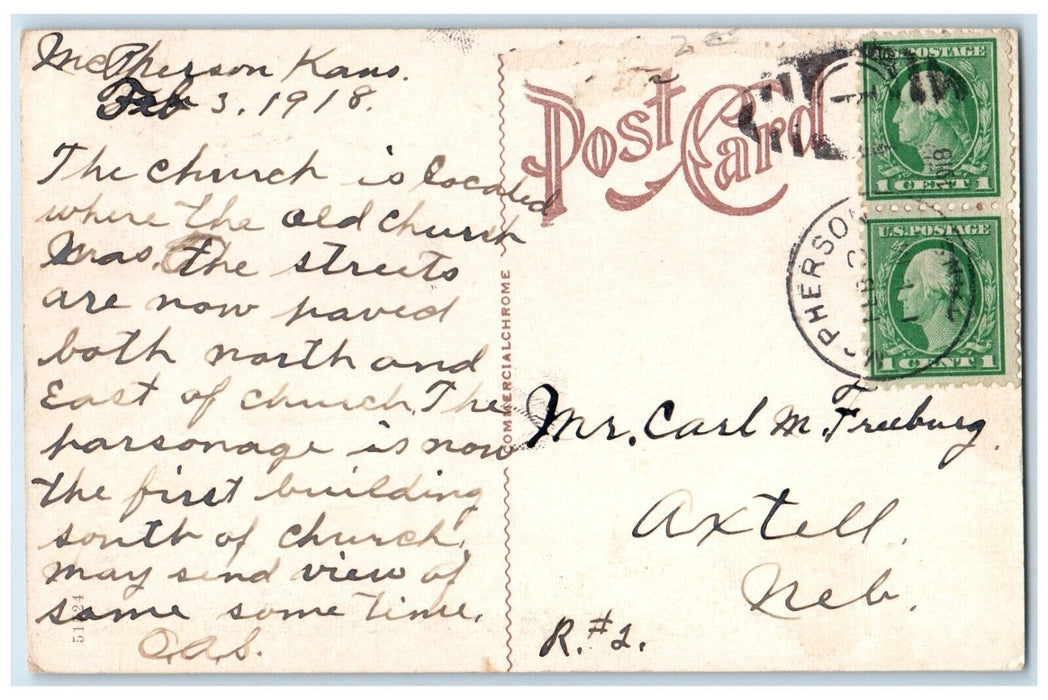 McPherson Kans.
Feb 3, 1918.
The church is located
where the old church
was. The streets
are now paved
both north and
East of church. The
parsonage is now
the first building
south of church.
may send view of
same some time.
O.A.S.
51124
COMMERCIALCHROME
Post Card
U.S. POSTAGE
1 CENT 1
U.S. POSTAGE
1 CENT 1
McPHERSON
FEB
Mr. Carl M. Freeburg
Axtell.
Neb.
R.#2.